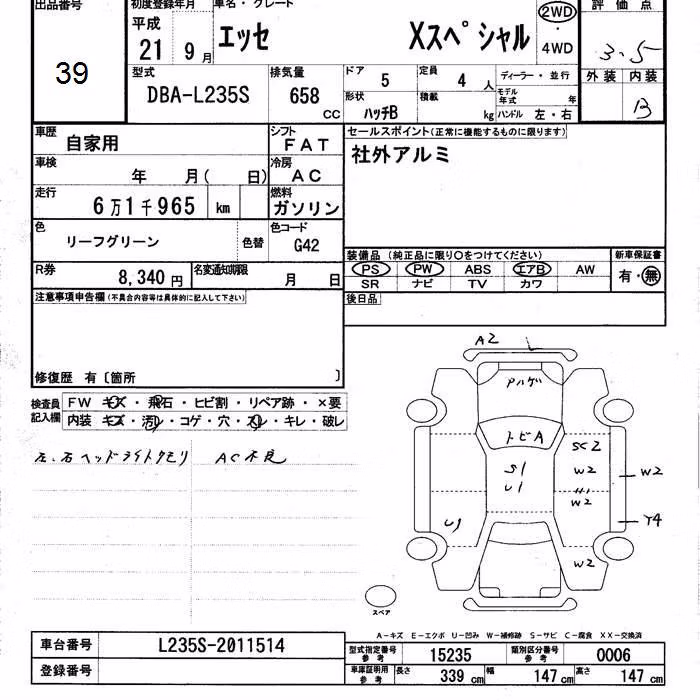 出品番号
39
初度登録年月
平成
21 9 月
車名・グレード
エッセ Xスペシャル
2WD
・
4WD
評価点
3.5
外装 内装
B
型式
DBA-L235S
排気量
658 CC
ドア 5
定員 4 人
形状 ハッチB
積載 kg
ディーラー・並行
モデル年式 年
ハンドル 左・右
車歴 自家用
シフト FAT
車検 年 月( 日)
冷房 AC
走行 6万1千965 km
燃料 ガソリン
色 リーフグリーン 色替
色コード G42
R券 8,340 円
名変通知期限 月 日
セールスポイント(正常に機能するものに限ります)
社外アルミ
装備品 (純正品に限り〇をつけてください)
PS PW ABS エアB AW
SR ナビ TV カワ
新車保証書
有・無
後日品
注意事項申告欄(不具合内容等は具体的に記入して下さい)
修復歴 有〔箇所 〕
検査員記入欄
FW キズ・飛石・ヒビ割・リペア跡・×要
内装 キズ・汚レ・コゲ・穴・スレ・キレ・破レ
左、右ヘッドライトクモリ AC不良
A2
アハゲ
トビA
S1
U1
SC2
W2
W2
W2
Y4
U1
W2
スペア
A-キズ E-エクボ U-凹み W-補修跡 S-サビ C-腐食 XX-交換済
車台番号 L235S-2011514
登録番号
型式指定番号参考 15235
類別区分番号参考 0006
車庫証明用参考 長さ 339 cm 幅 147 cm 高さ 147 cm